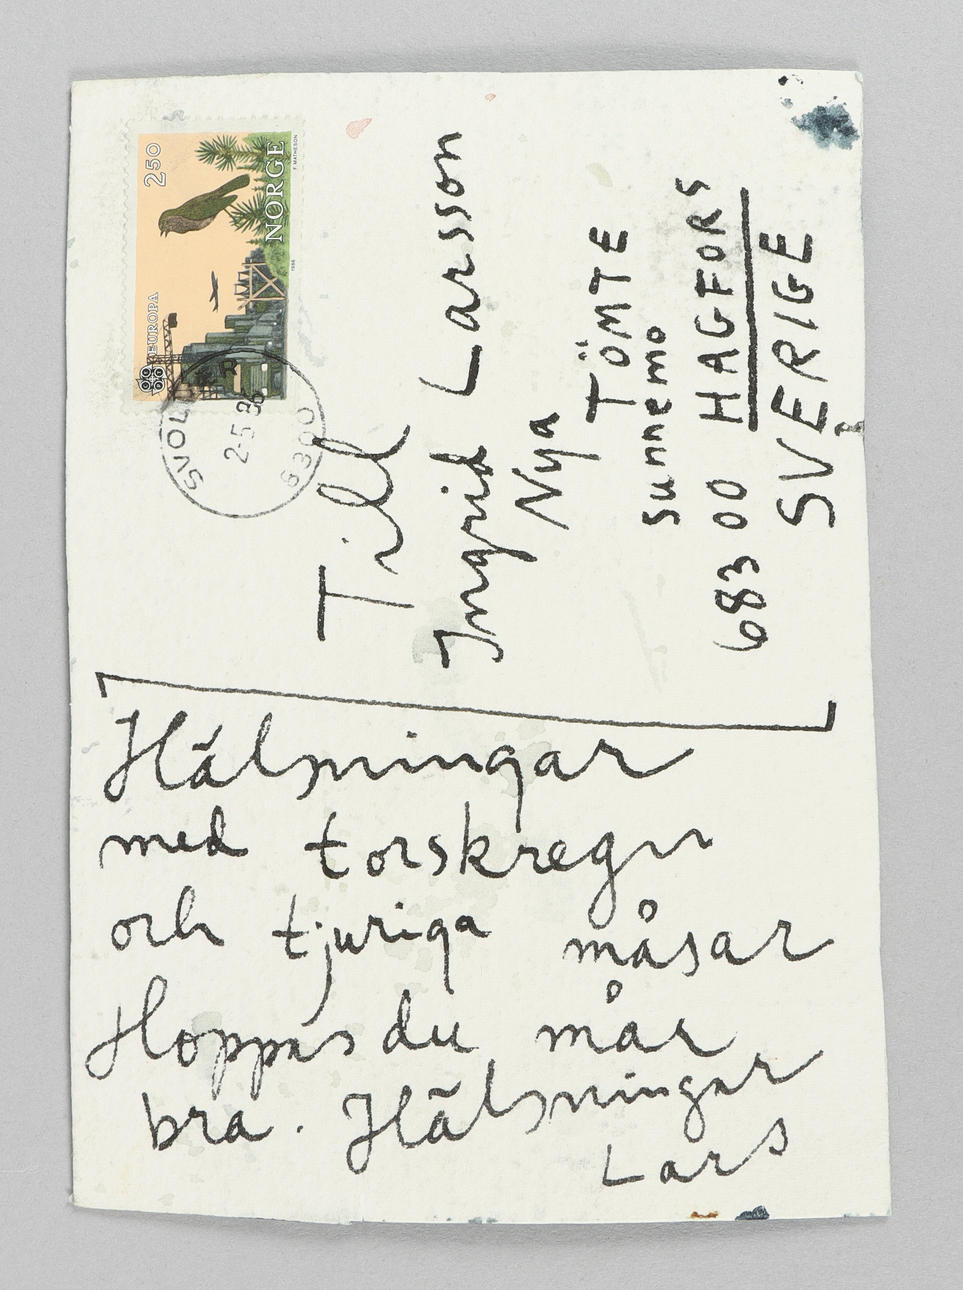 Hälsningar
med torskregn
och tjuriga måsar
Hoppas du mår
bra. Hälsningar
Lars
Till
Ingrid Larsson
Nya
TÖMTE
Sunnemo
683 00 HAGFORS
SVERIGE
2.50
NORGE
EUROPA
F. MATHESON
1986
2-5.86
8300